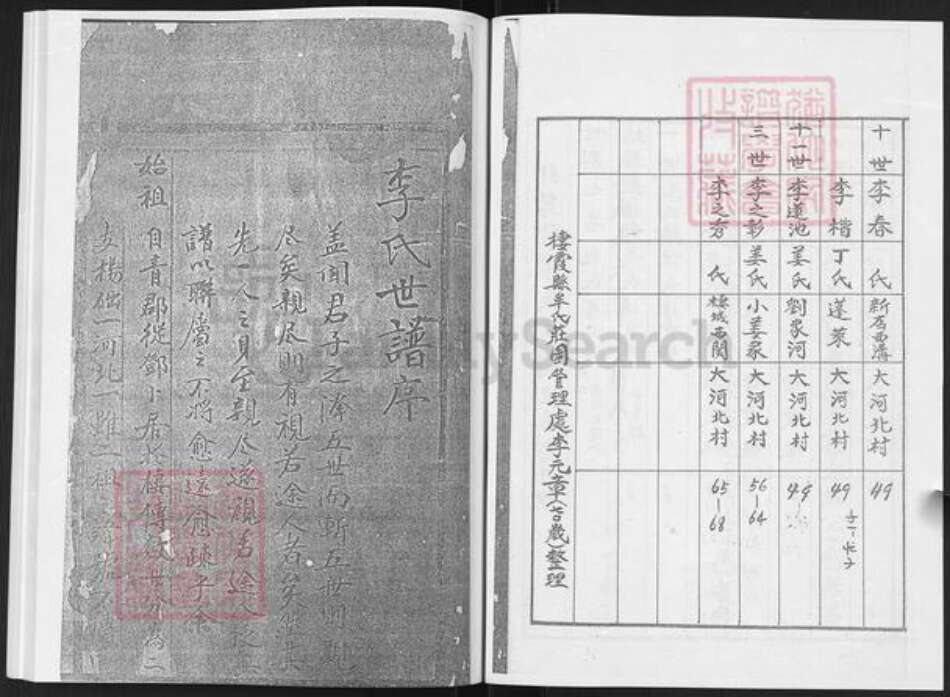 十世 李春 氏 新店西溝 大河北村 49
李楷 丁氏 蓬萊 大河北村 49
十一世 李蓮池 姜氏 劉家河 大河北村 49
三世 李之彰 姜氏 小姜家 大河北村 56-64
李之秀 氏 棲城西関 大河北村 65-68
棲霞縣牟氏莊園管理處李元章(七十歲)整理
李氏世譜序
蓋聞君子之澤五世而斬五世則親
尽矣親尽則有視若途人者矣
先一人之身至親尽遂視若途人
譜以聯屬之不將愈遠愈疎乎余
始祖自青郡從鄧卜居於棲傳 世分為二
支 一河北一 二祖
FamilySearch